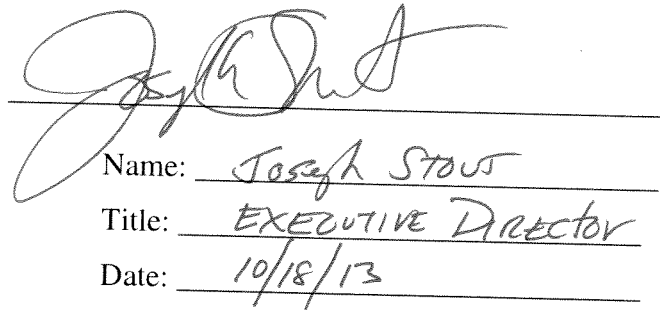 Joseph Stout
Name: Joseph Stout
Title: Executive Director
Date: 10/18/13